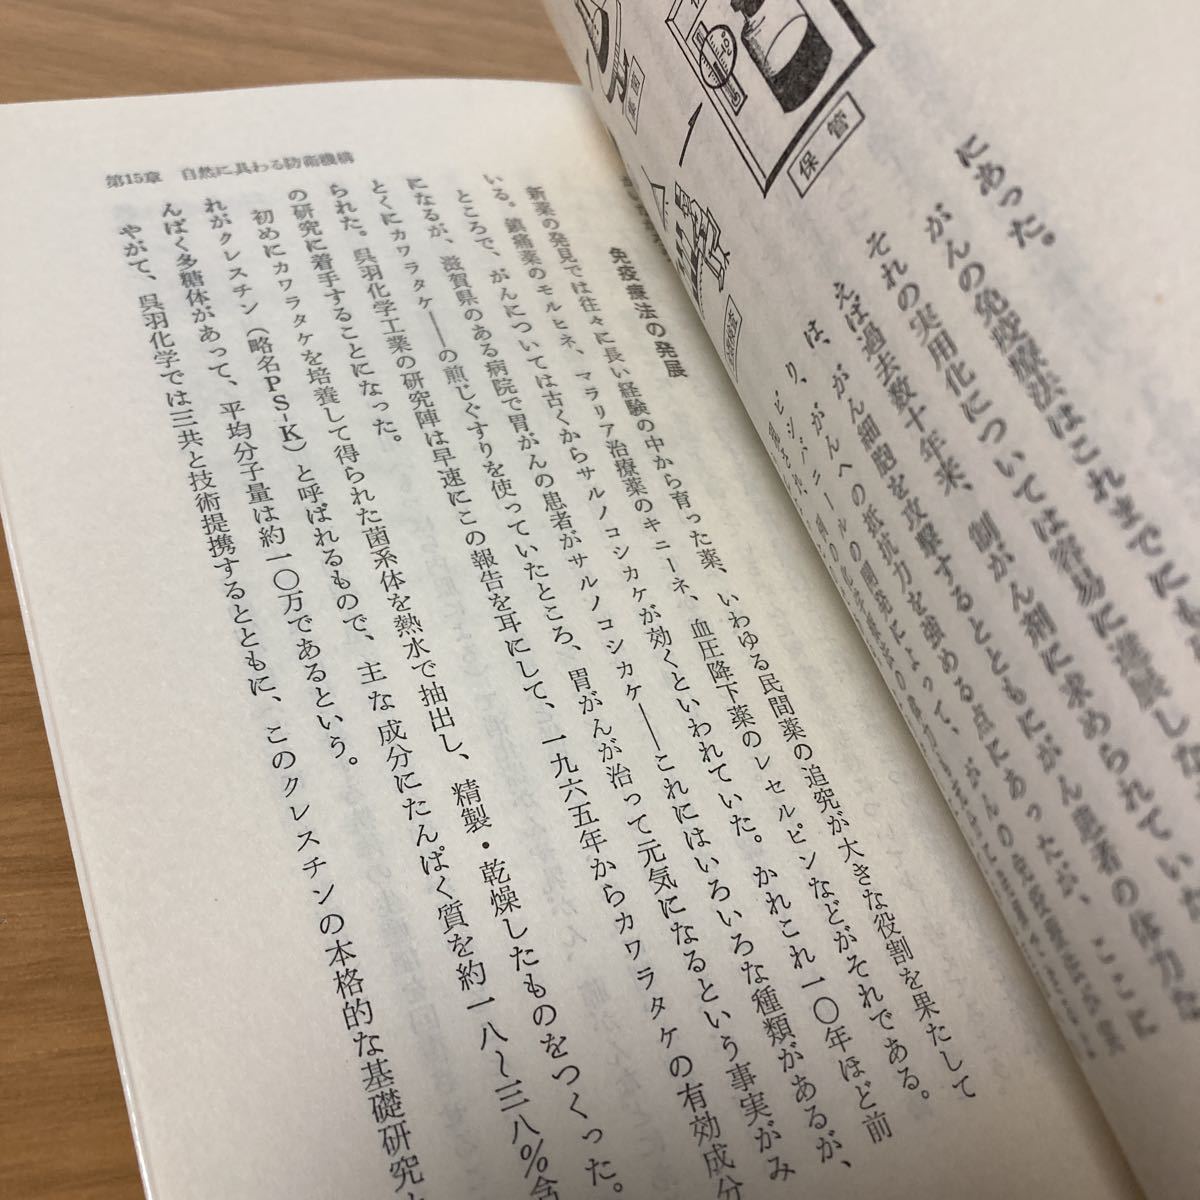 にあった。
がんの免疫療法はこれまでにも
それの実用化については容易に進展しな
えば過去数十年来、制がん剤に求められていた
は、がん細胞を攻撃するとともにがん患者の体力な
り、がんへの抵抗力を強める点にあったが、ここに
ピシバニールの開発によって、がんの
保管
第15章 自然に具わる防衛機構
免疫療法の発展
新薬の発見では往々に長い経験の中から育った薬、いわゆる民間薬の追究が大きな役割を果たして
いる。鎮痛薬のモルヒネ、マラリア治療薬のキニーネ、血圧降下薬のレセルピンなどがそれである。
ところで、がんについては古くからサルノコシカケが効くといわれていた。かれこれ一〇年ほど前
になるが、滋賀県のある病院で胃がんの患者がサルノコシカケ――これにはいろいろな種類があるが、
とくにカワラタケ――の煎じぐすりを使っていたところ、胃がんが治って元気になるという事実がみ
られた。呉羽化学工業の研究陣は早速にこの報告を耳にして、一九六五年からカワラタケの有効成分
の研究に着手することになった。
初めにカワラタケを培養して得られた菌糸体を熱水で抽出し、精製・乾燥したものをつくった。
れがクレスチン（略名PS-K）と呼ばれるもので、主な成分にたんぱく質を約一八～三八％含
んぱく多糖体があって、平均分子量は約一〇万であるという。
やがて、呉羽化学では三共と技術提携するとともに、このクレスチンの本格的な基礎研究